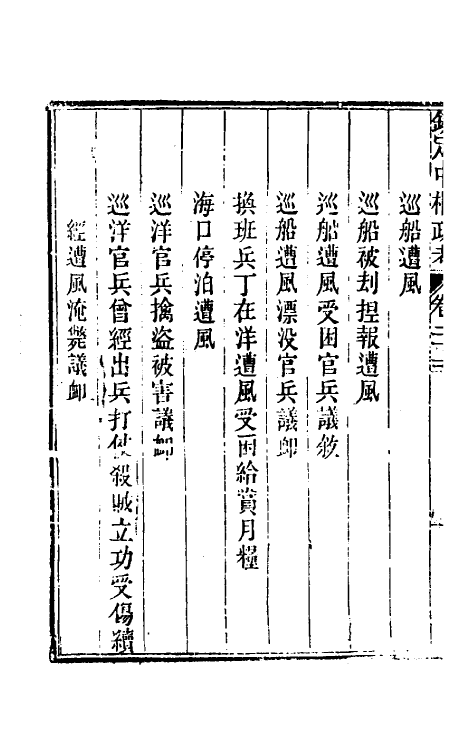 欽定中樞政考 卷二十三
巡船遭風
巡船被刦捏報遭風
巡船遭風受困官兵議敘
巡船遭風漂没官兵議卹
換班兵丁在洋遭風受困給賞月糧
海口停泊遭風
巡洋官兵擒盜被害議卹
巡洋官兵曾經出兵打仗殺賊立功受傷續
經遭風淹斃議卹